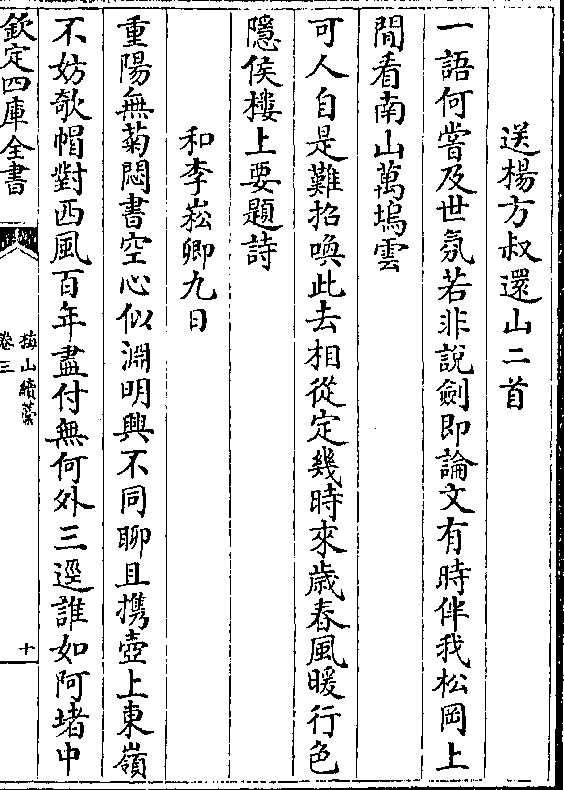 送楊方叔還山二首
一語何嘗及世氛若非說劍即論文有時伴我松岡上
閒看南山萬塢雲
可人自是難招喚此去相從定幾時來歲春風暖行色
隱侯樓上要題詩
和李崧卿九日
重陽無菊悶書空心似淵明興不同聊且携壺上東嶺
不妨欹帽對西風百年盡付無何外三逕誰如阿堵中
欽定四庫全書
梅山續藁
卷三
十